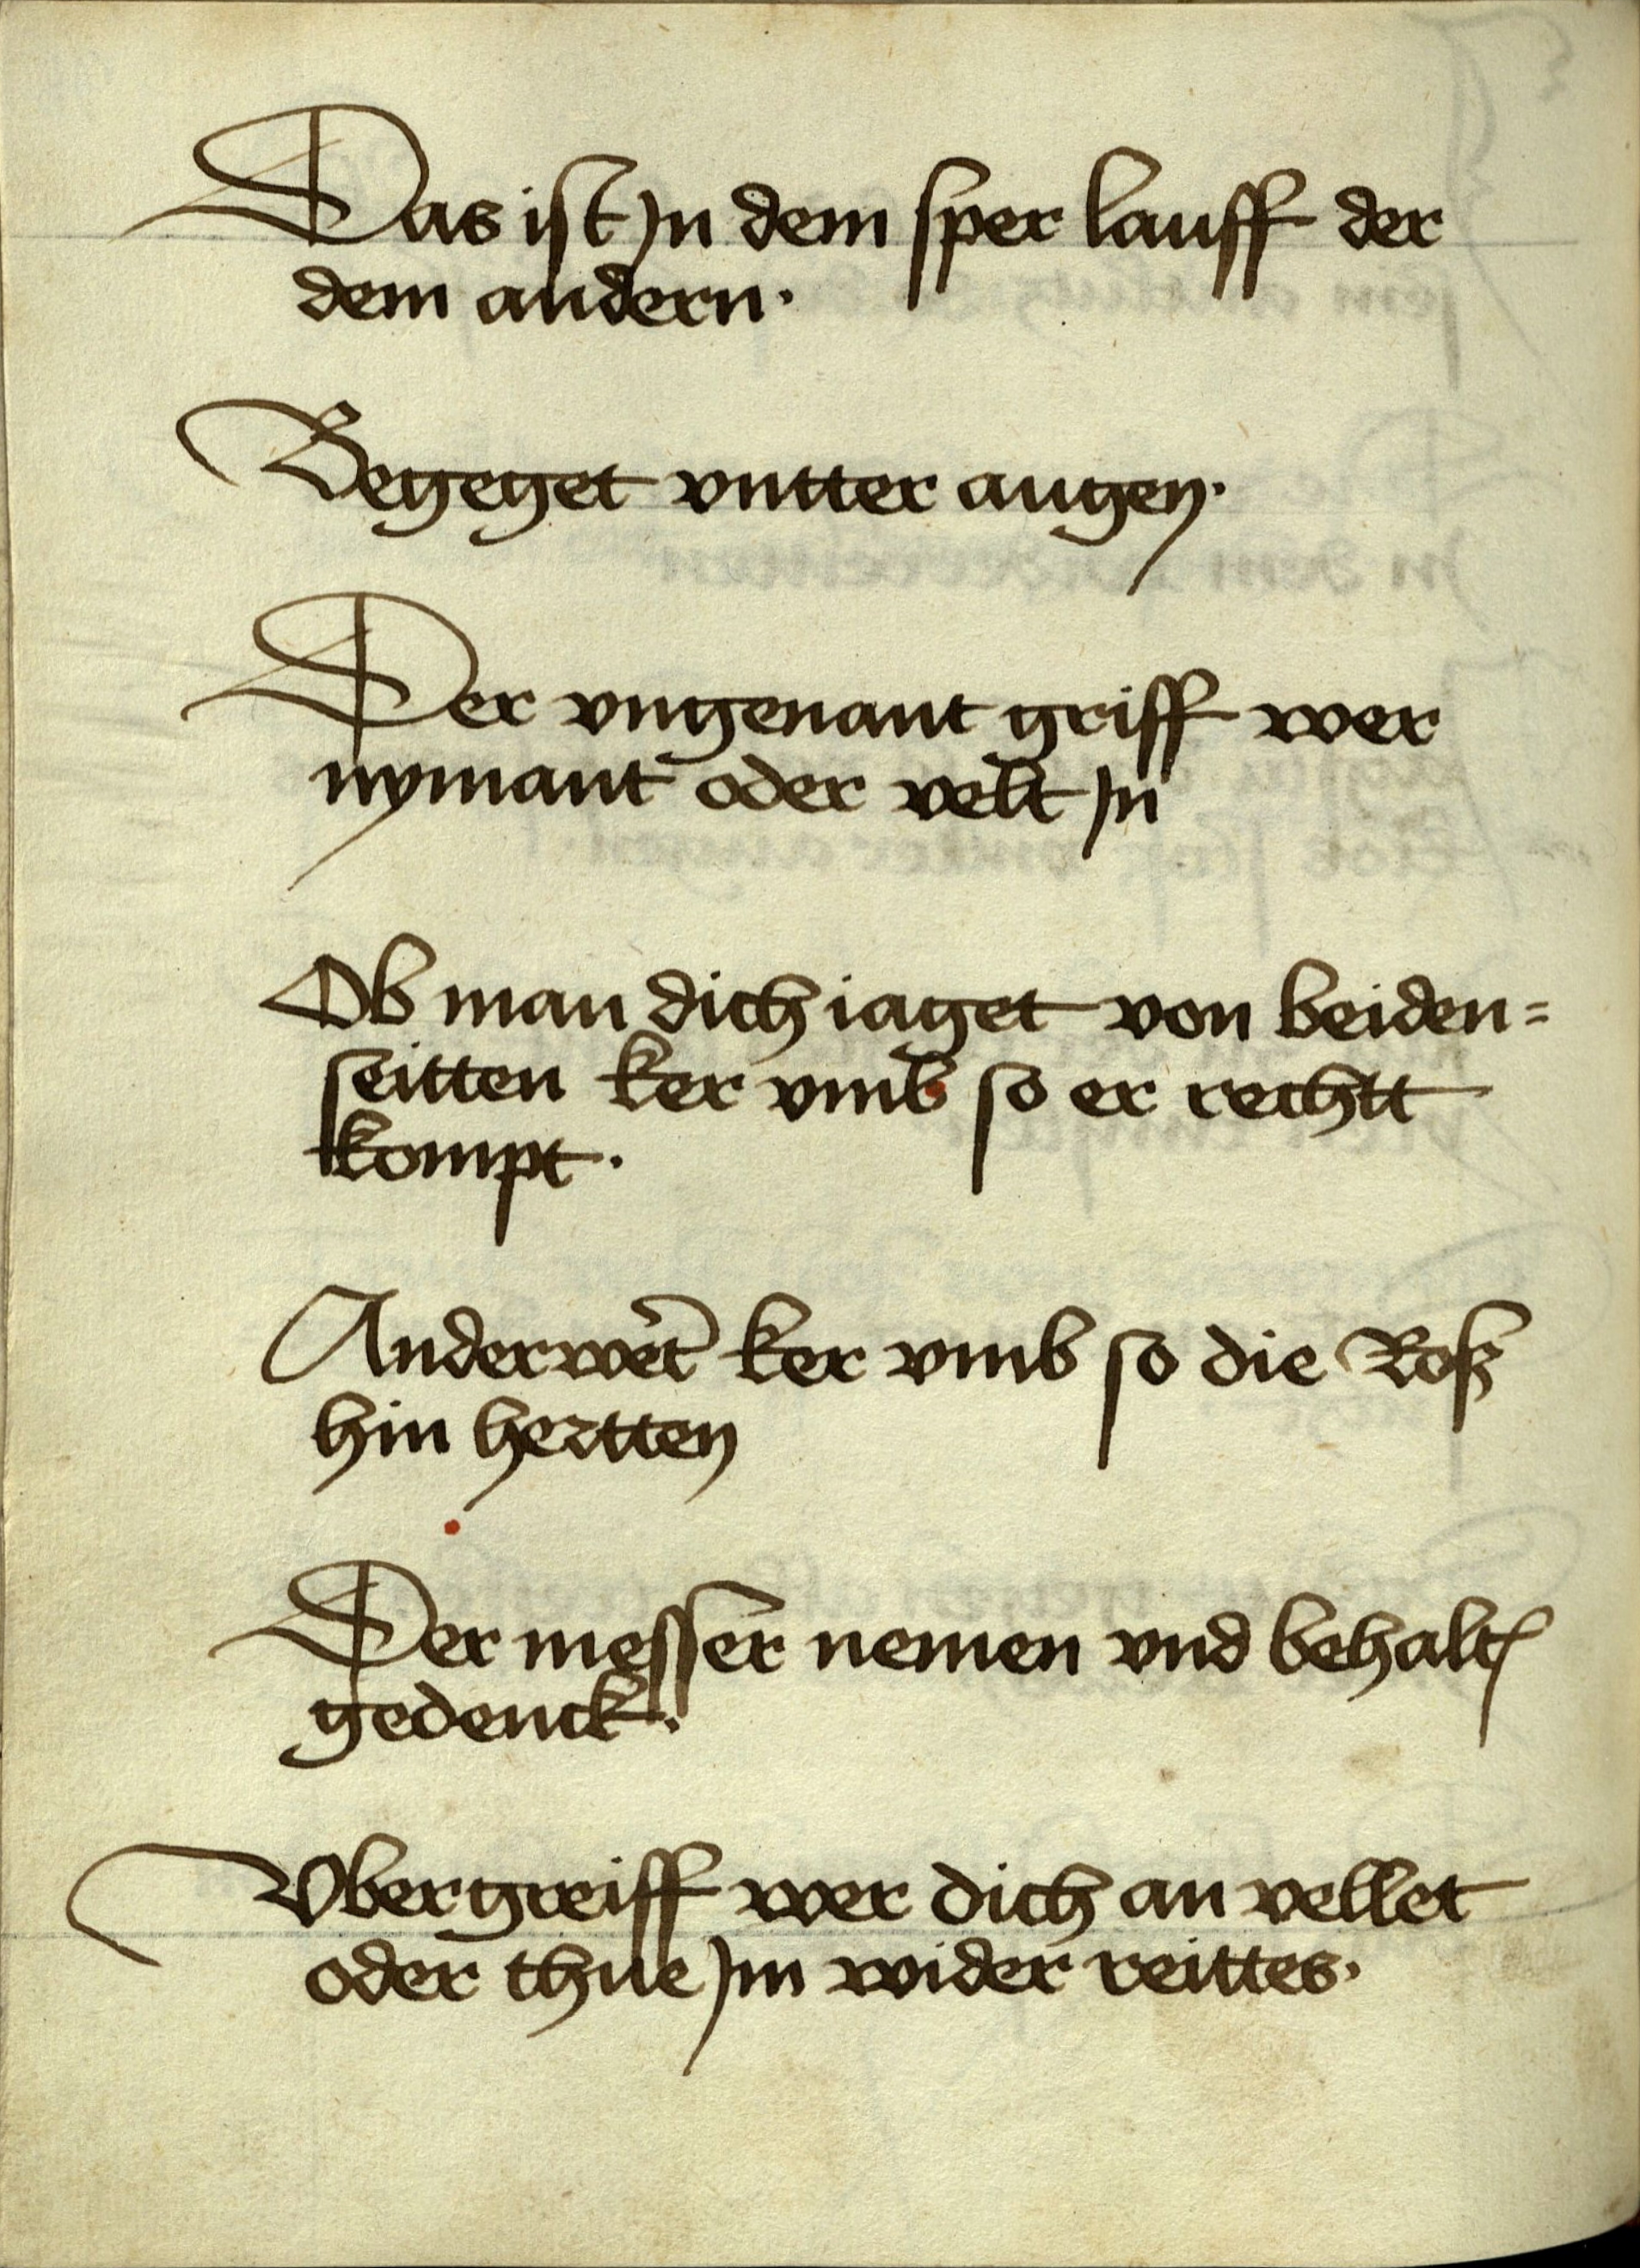 Das ist Jn dem sper lauff der
dem andern.
Begeget vntter augen.
Der vngenant griff wer
nymant oder velt Jn
Ob man dich iaget von beiden=
seitten ker vmb so er rechtt
kompt.
Anderwet̃ ker vmb so die Roß
hin hertten
Der messer nemen vnd behaltꝭ
gedenck.
Vbergreiff wer dich an vellet
oder thue Jm wider reittes.